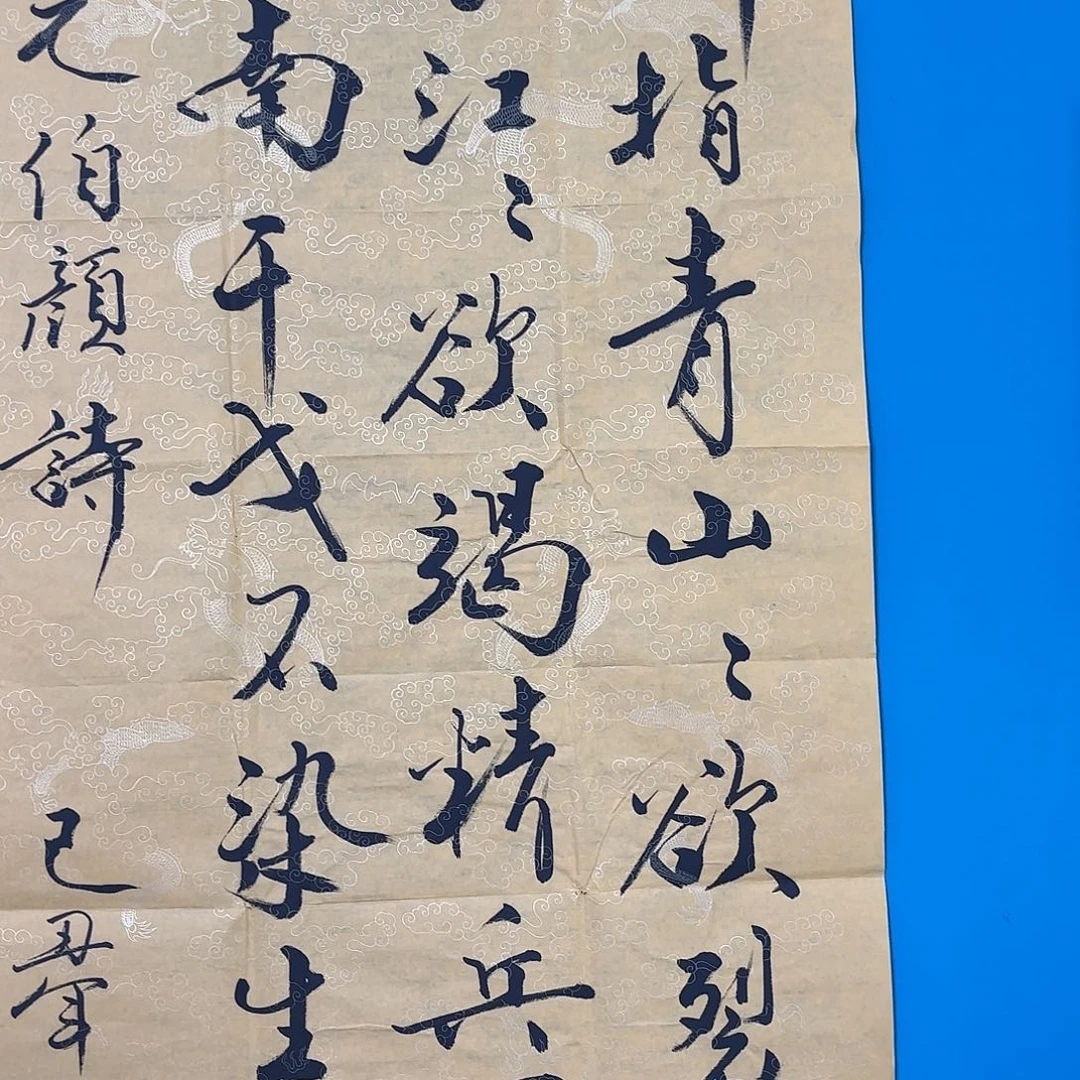 指青山〻欲裂
江〻欲竭精兵
南干戈不染生
元伯顏詩 己丑年